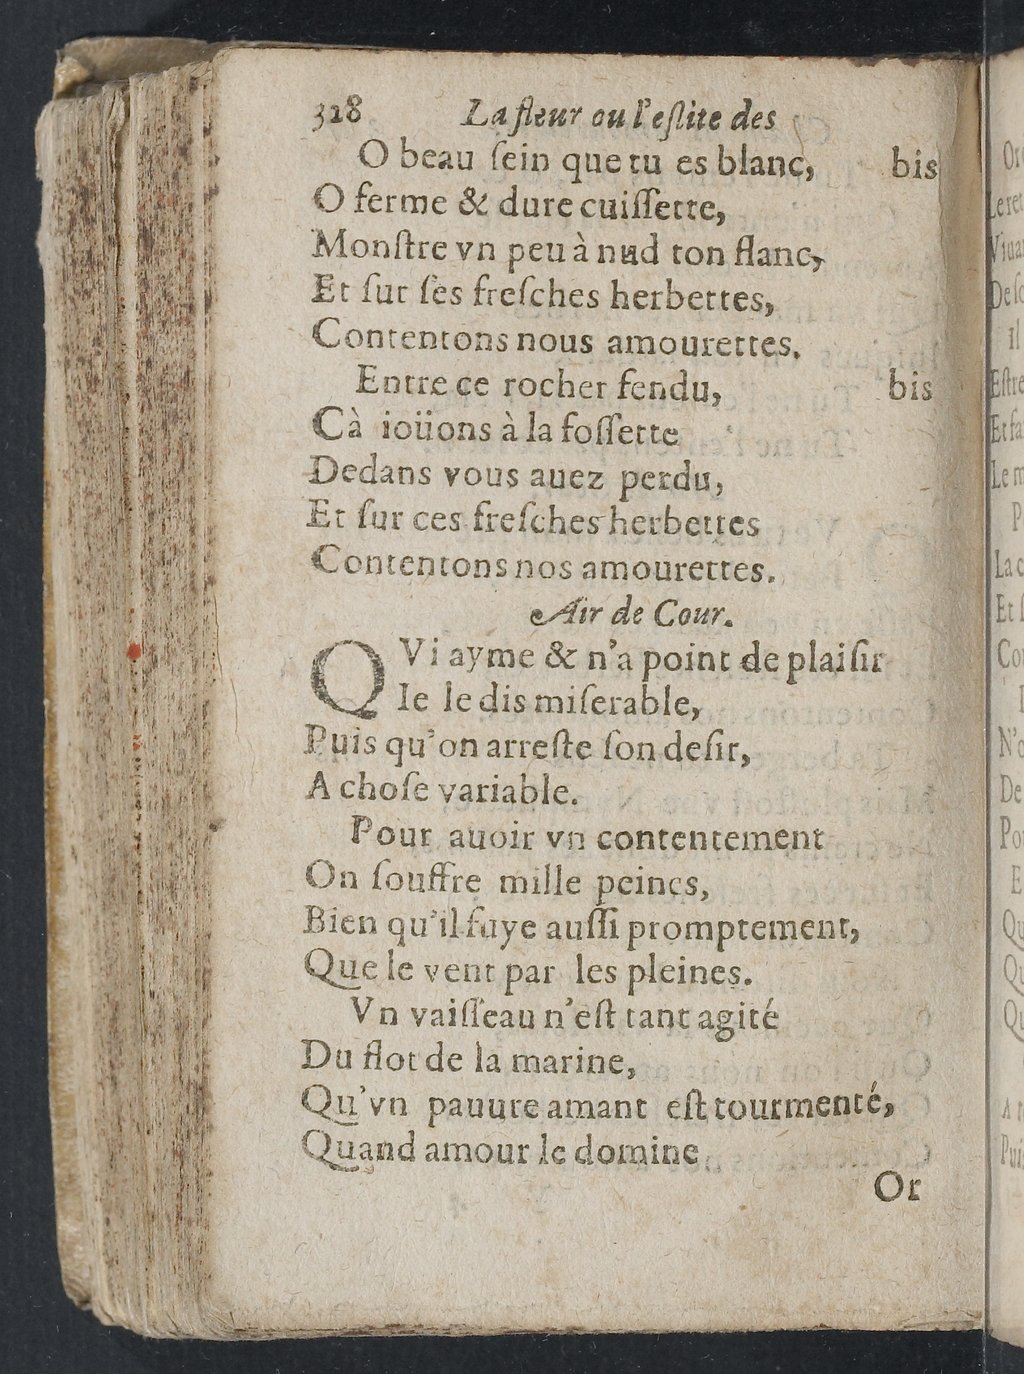 328 La fleur ou l'eſlite des
O beau ſein que tu es blanc, bis
O ferme & dure cuiſſette,
Monſtre vn peu à nud ton flanc,
Et ſur ſes freſches herbettes,
Contentons nous amourettes.
Entre ce rocher fendu, bis
Cà ioüons à la foſſette
Dedans vous auez perdu,
Et ſur ces freſches herbettes
Contentons nos amourettes.
Air de Cour.
QVi ayme & n'a point de plaiſir
Ie le dis miſerable,
Puis qu'on arreſte ſon deſir,
A choſe variable.
Pour auoir vn contentement
On ſouffre mille peines,
Bien qu'il fuye auſſi promptement,
Que le vent par les pleines.
Vn vaiſſeau n'eſt tant agité
Du flot de la marine,
Qu'vn pauure amant eſt tourmenté,
Quand amour le domine
Or